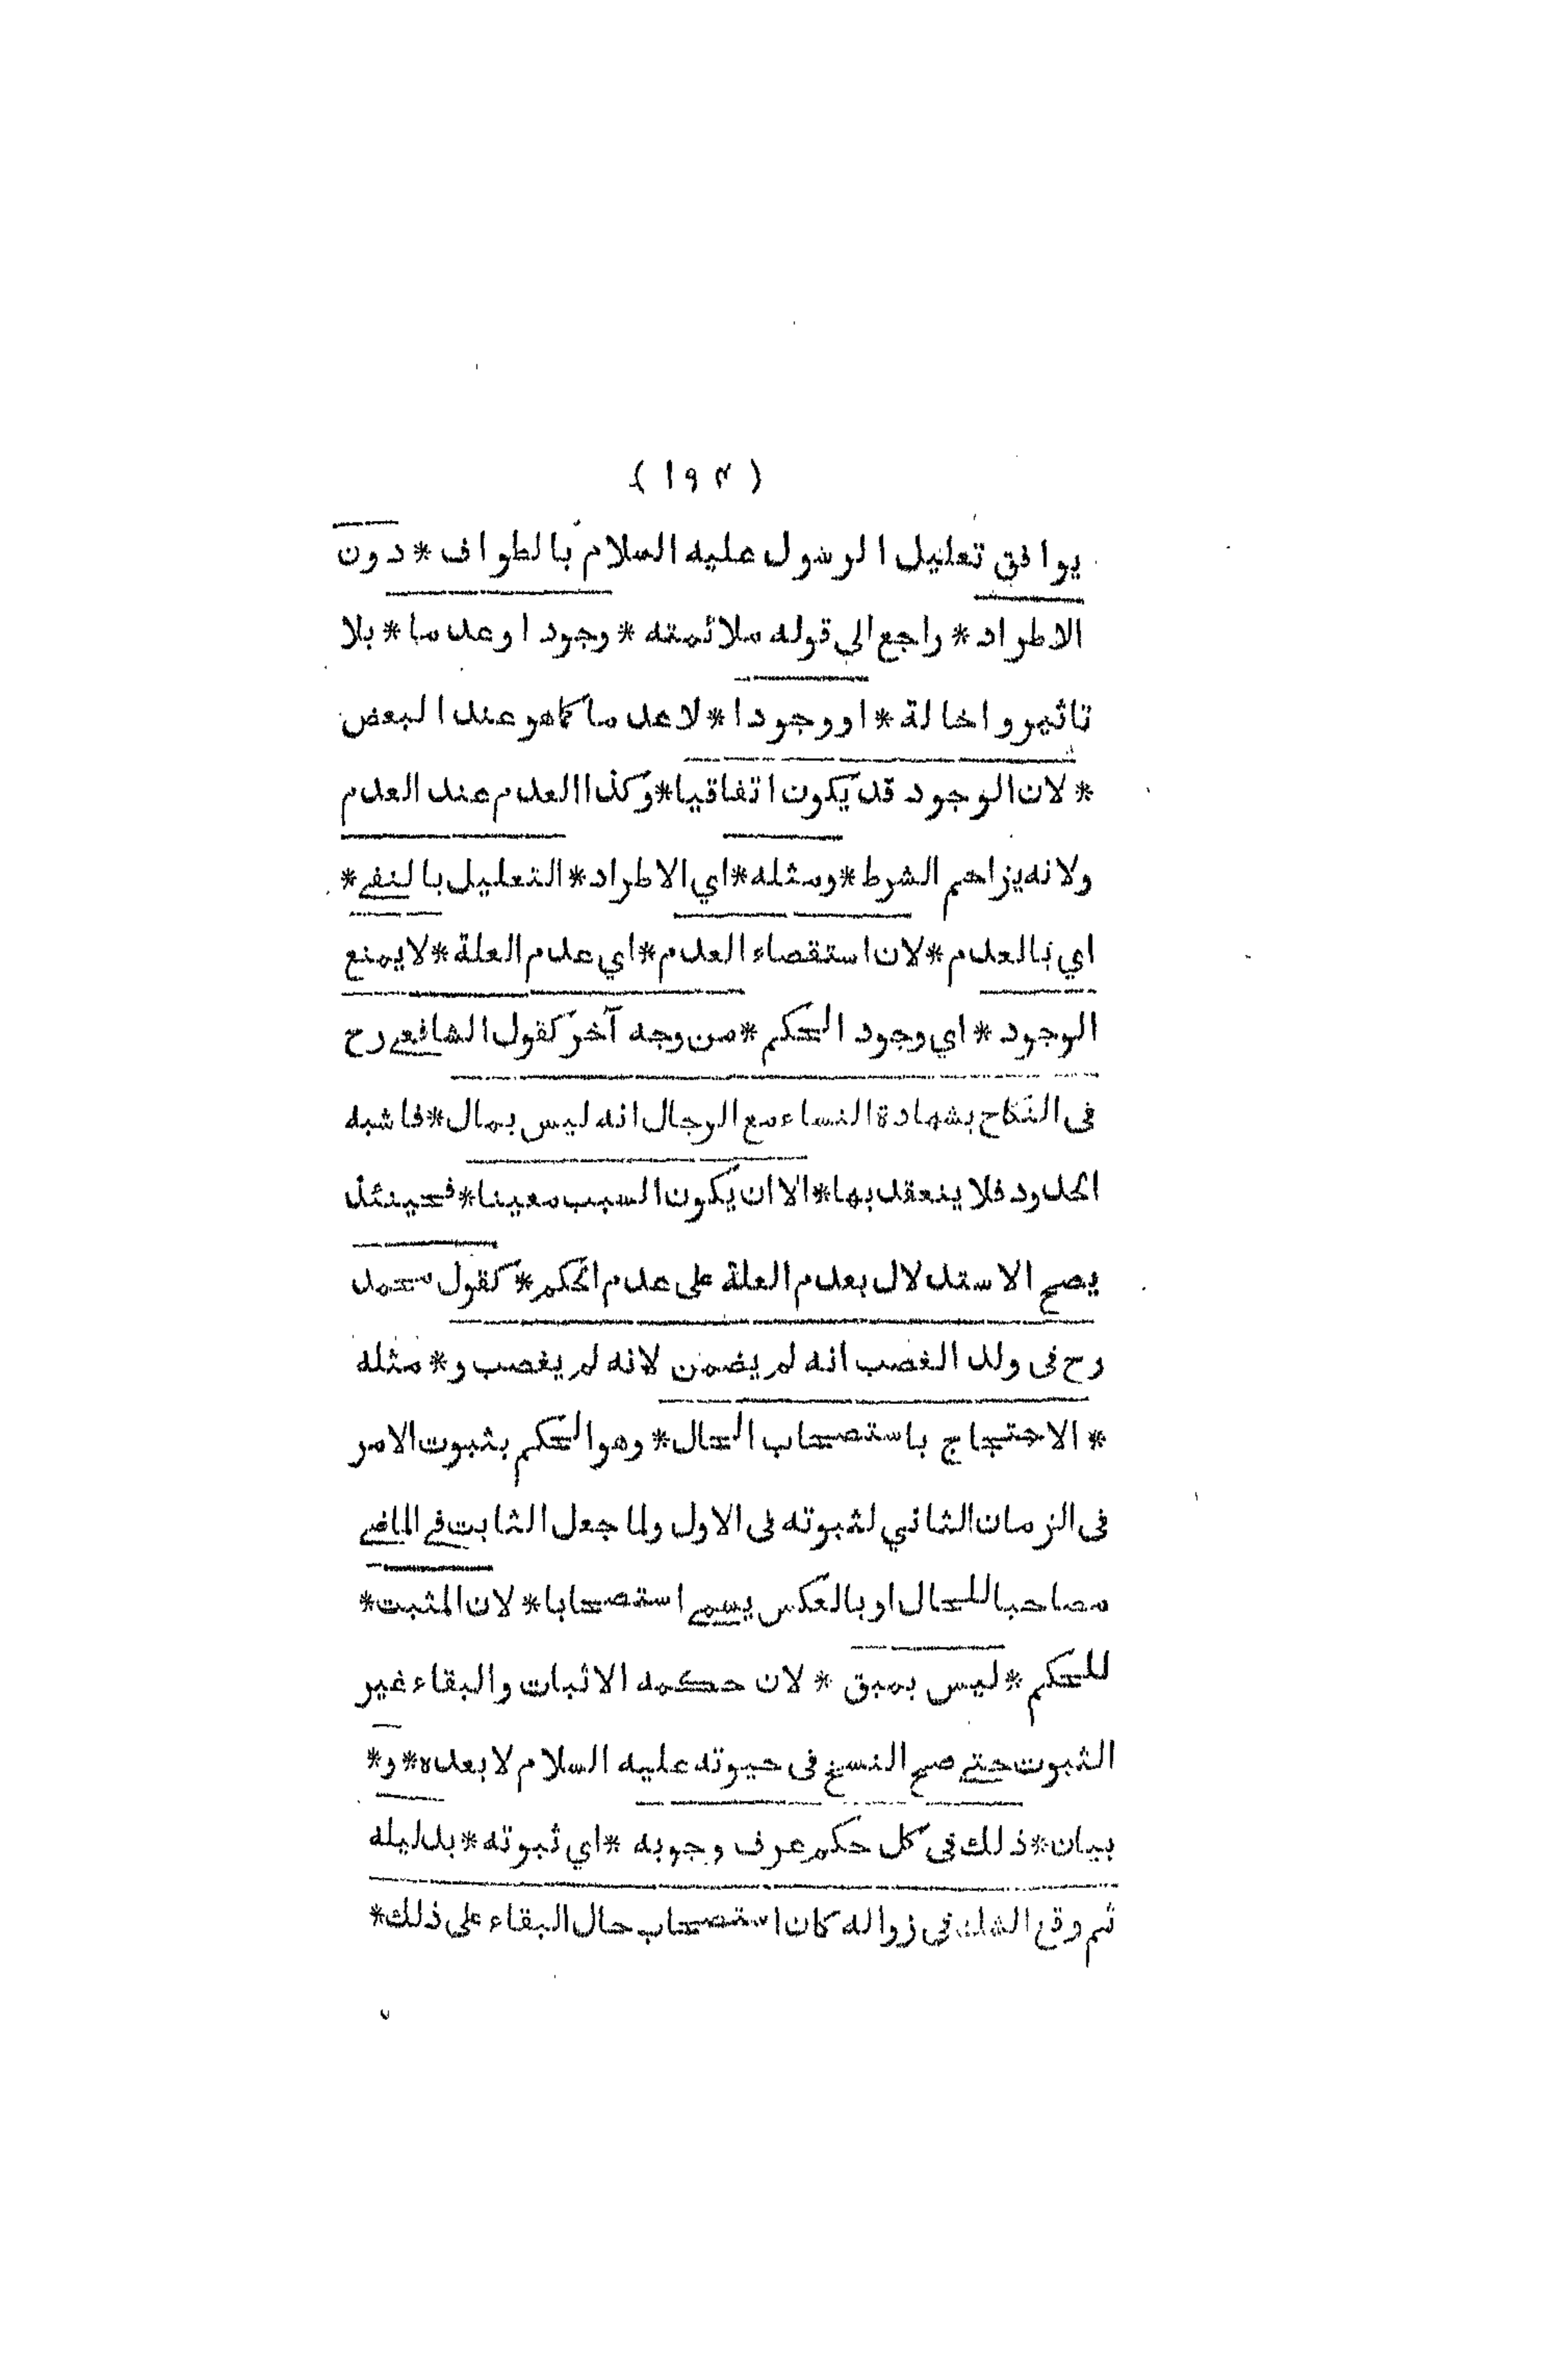 ( ١٩٣ )
يوافق تعليل الرسول عليه السلام بالطواف * دون
الاطراد * راجع الي قوله ملائمته * وجودا وعدما * بلا
تاثير واخالة * او وجودا * لا عدما كما هو عند البعض
* لان الوجود قد يكون اتفاقيا * وكذا العدم عند العدم
ولانه يزاحم الشرط * ومثله * اي الاطراد * التعليل بالنفے *
اي بالعدم * لان استقصاء العدم * اي عدم العلة * لا يمنع
الوجود * اي وجود الحكم * من وجه آخر كقول الشافعے رح
فى النكاح بشهادة النساء مع الرجال انه ليس بمال * فاشبه
الحدود فلا ينعقد بها * الا ان يكون السبب معينا * فحينئذ
يصح الاستدلال بعدم العلة على عدم الحكم * كقول محمد
رح فى ولد الغصب انه لم يضمن لانه لم يغصب و * مثله
* الاحتجاج باستصحاب الحال * وهو الحكم بثبوت الامر
فى الزمان الثاني لثبوته فى الاول ولما جعل الثابت فے الماضے
مصاحبا للحال او بالعكس يسمے استصحابا * لان المثبت *
للحكم * ليس بمبق * لان حكمه الاثبات والبقاء غير
الثبوت حتے صح النسخ فى حيوته عليه السلام لا بعده * و *
بيان * ذلك فى كل حكم عرف وجوبه * اي ثبوته * بدليله
ثم وقع الشك فى زواله كان استصحاب حال البقاء على ذلك *